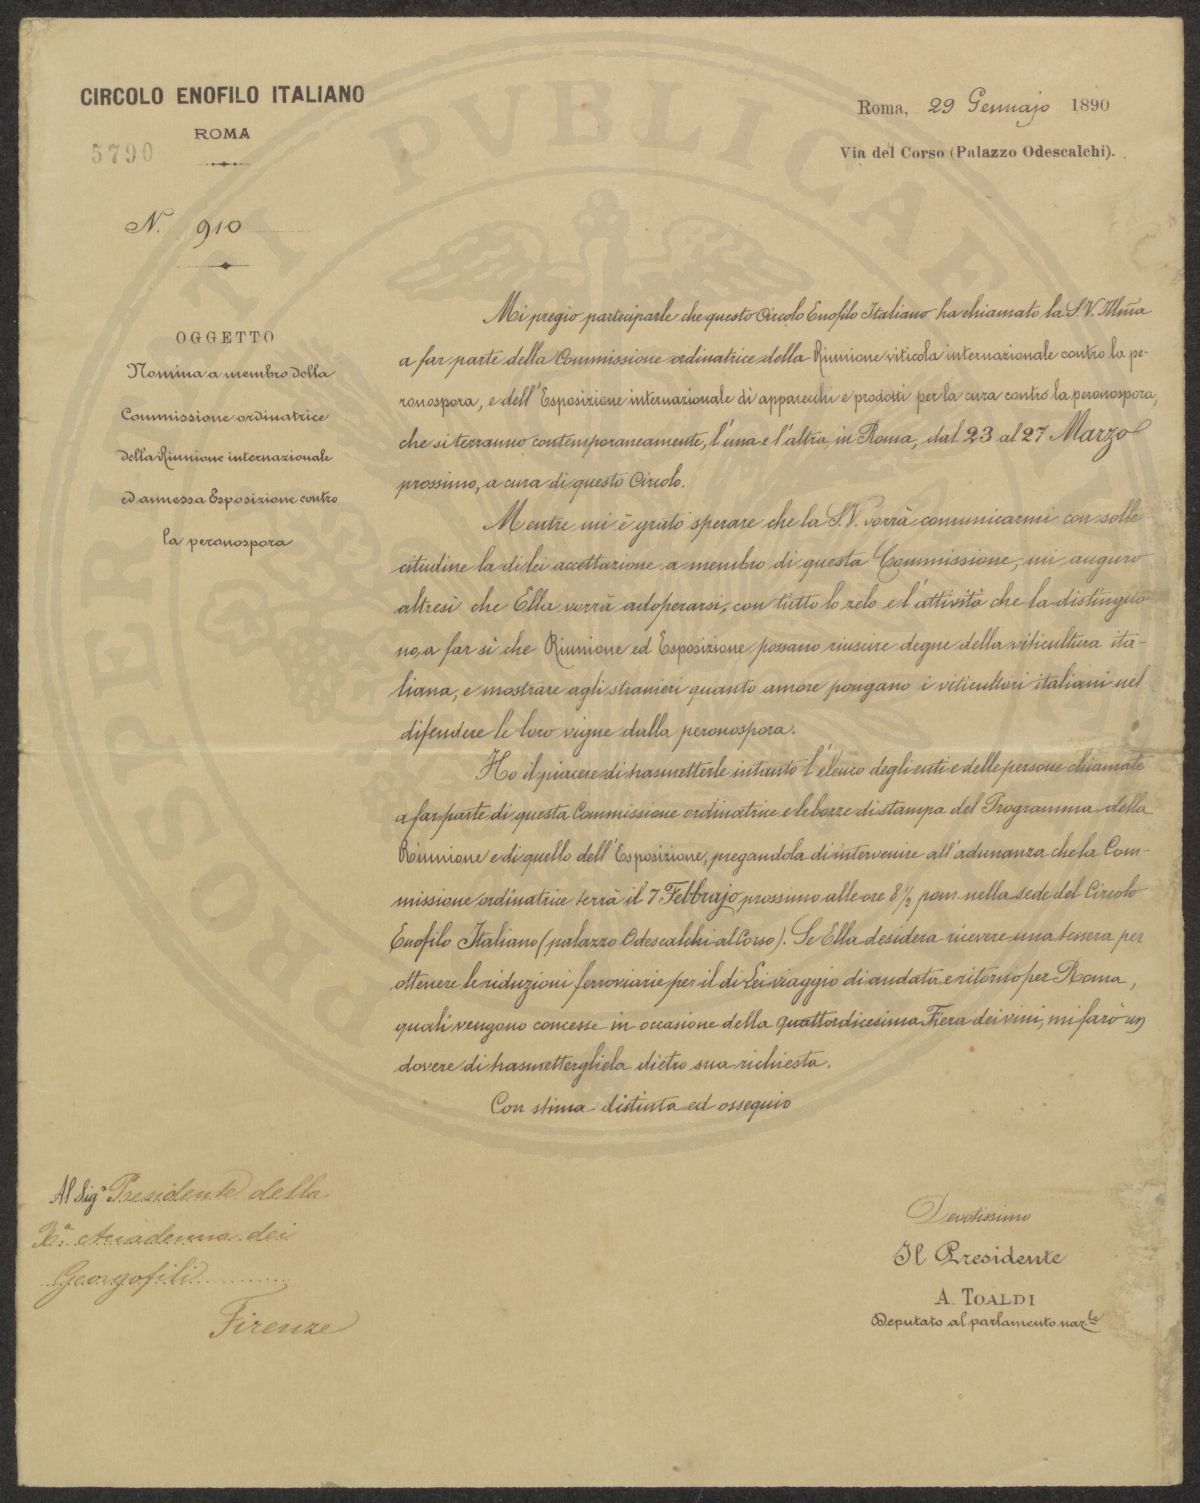 CIRCOLO ENOFILO ITALIANO
ROMA
5790
N. 910
Roma, 29 Gennajo 1890
Via del Corso (Palazzo Odescalchi).
OGGETTO
Nomina a membro della
Commissione ordinatrice
della Riunione internazionale
ed annessa Esposizione contro
la peronospora
Mi pregio parteciparle che questo Circolo Enofilo Italiano ha chiamato la S.V. Illma
a far parte della Commissione ordinatrice della Riunione viticola internazionale contro la pe-
ronospora, e dell'Esposizione internazionale di apparecchi e prodotti per la cura contro la peronospora,
che si terranno contemporaneamente, l'una e l'altra, in Roma, dal 23 al 27 Marzo
prossimo, a cura di questo Circolo.
Mentre mi è grato sperare che la S.V. vorrà comunicarmi con solle-
citudine la di lei accettazione a membro di questa Commissione, mi auguro
altresì che Ella vorrà adoperarsi, con tutto lo zelo e l'attività che la distinguo-
no, a far sì che Riunione ed Esposizione possano riuscire degne della viticultura ita-
liana, e mostrare agli stranieri quanto amore pongano i viticultori italiani nel
difendere le loro vigne dalla peronospora.
Ho il piacere di trasmetterle intanto l'elenco degli enti e delle persone chiamate
a far parte di questa Commissione ordinatrice e le bozze di stampa del Programma della
Riunione e di quello dell'Esposizione, pregandola di intervenire all'adunanza che la Com-
missione ordinatrice terrà il 7 Febbrajo prossimo alle ore 8 1/2 pom. nella sede del Circolo
Enofilo Italiano (palazzo Odescalchi al Corso). Se Ella desidera ricevere una tessera per
ottenere le riduzioni ferroviarie per il di Lei viaggio di andata e ritorno per Roma,
quali vengono concesse in occasione della quattordicesima Fiera dei vini, mi farò un
dovere di trasmettergliela dietro sua richiesta.
Con stima distinta ed ossequio
Al Sigr Presidente della
Ra. Accademia dei
Georgofili
Firenze
Devotissimo
Il Presidente
A. TOALDI
Deputato al parlamento naz.le